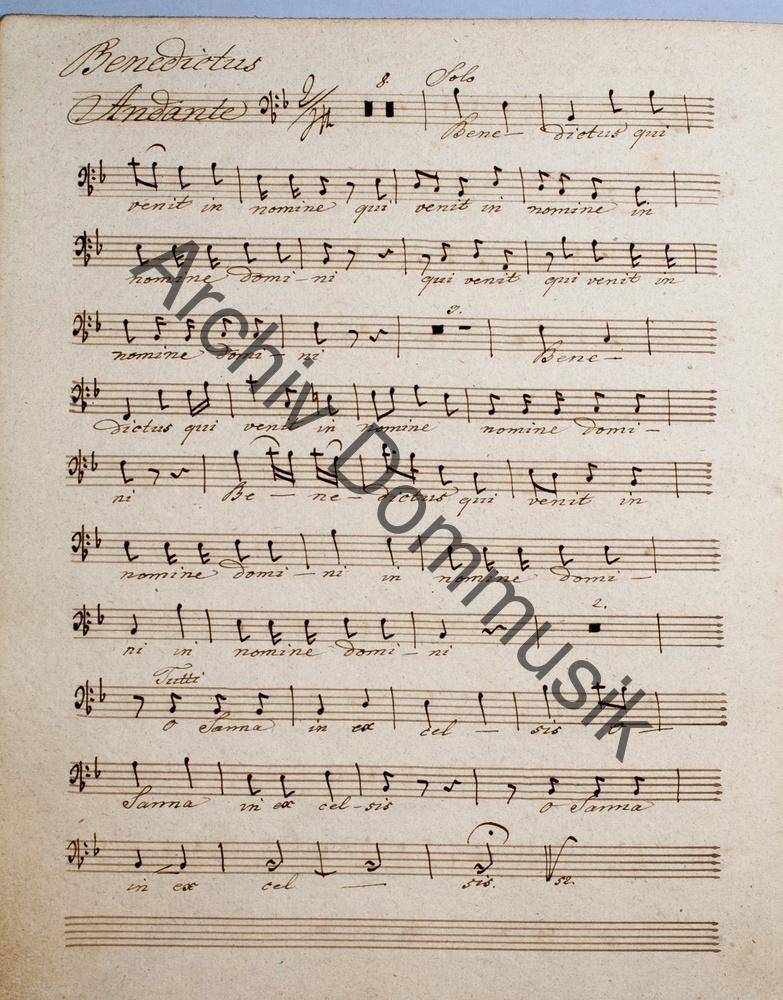 Benedictus
8. Solo
Andante 2/4
Bene- dictus qui
venit in nomine qui venit in nomine in
nomine domi-ni qui venit qui venit in
nomine domi-ni 3. Bene-
dictus qui venit in nomine nomine domi-
ni Be-ne-dictus qui venit in
nomine domi-ni in nomine domi-
2.
ni in nomine domi-ni
Tutti
o Sanna in ex cel- sis o-
Sanna in ex cel-sis o Sanna
in ex cel- sis.
Archiv Dommusik